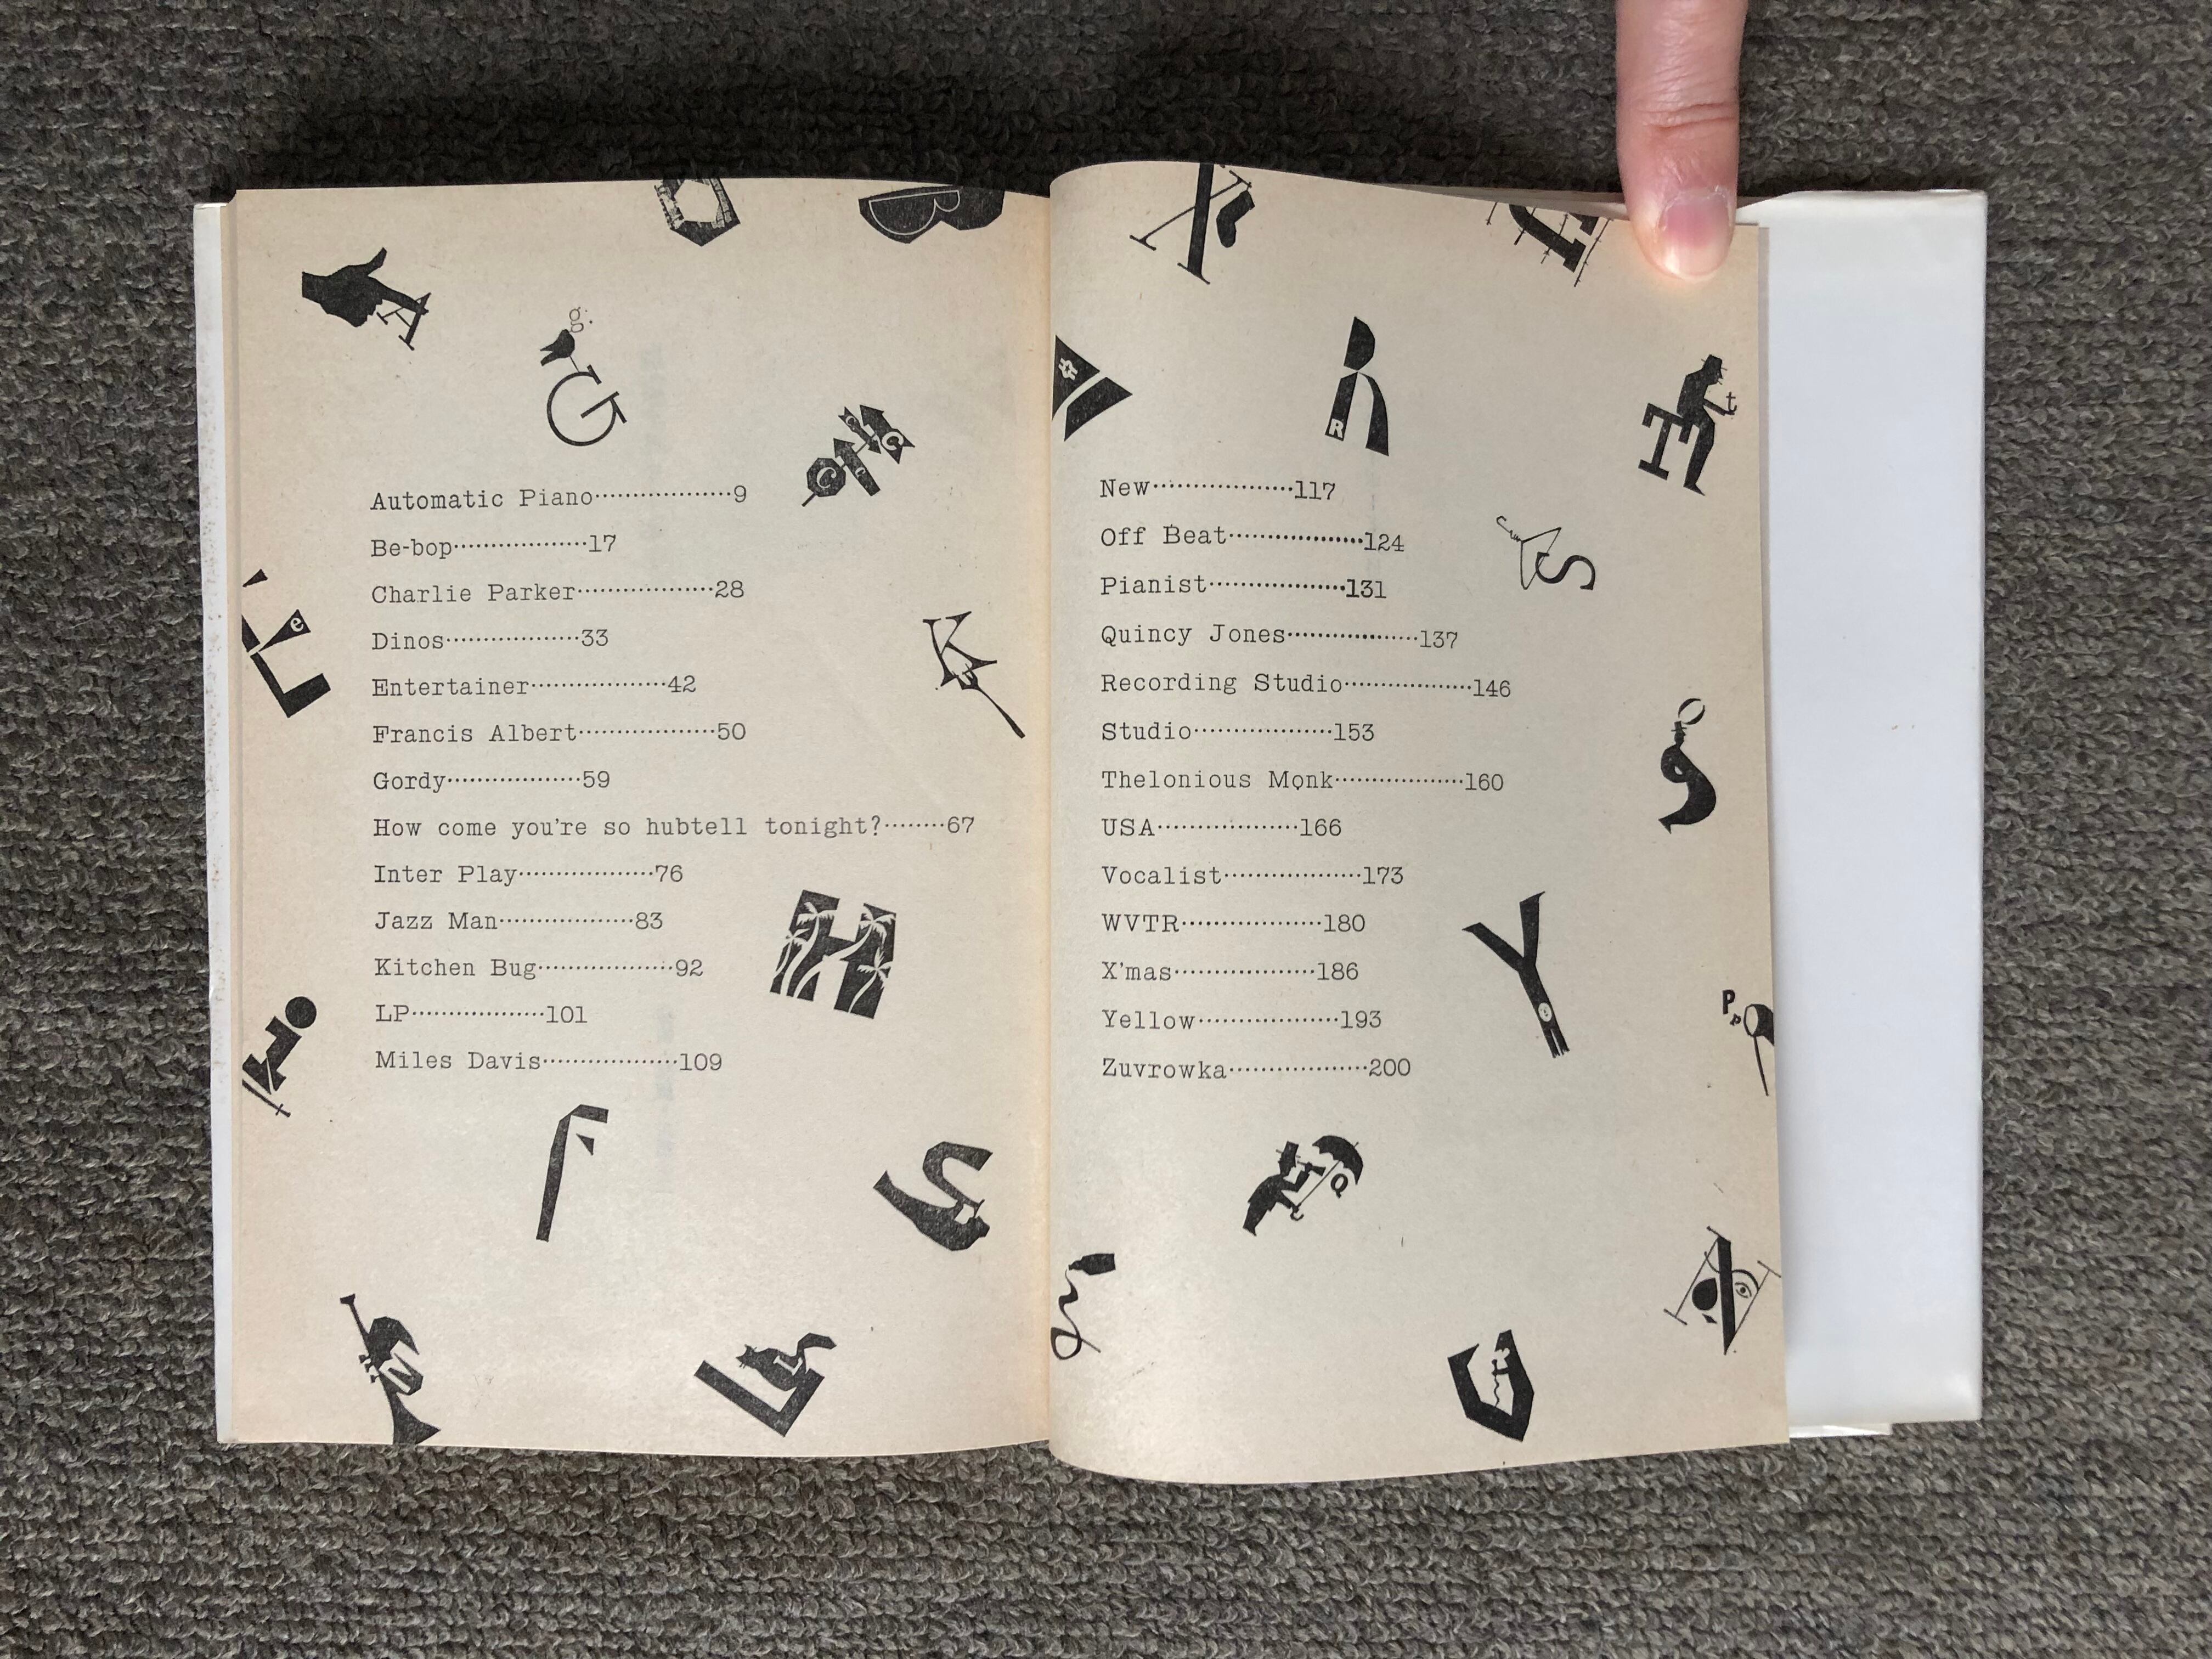 Automatic Piano··················9
Be-bop··················17
Charlie Parker··················28
Dinos··················33
Entertainer··················42
Francis Albert··················50
Gordy··················59
How come you're so hubtell tonight?········67
Inter Play··················76
Jazz Man··················83
Kitchen Bug··················92
LP··················101
Miles Davis··················109
New··················117
Off Beat··················124
Pianist··················131
Quincy Jones··················137
Recording Studio··················146
Studio··················153
Thelonious Monk··················160
USA··················166
Vocalist··················173
WVTR··················180
X'mas··················186
Yellow··················193
Zuvrowka··················200